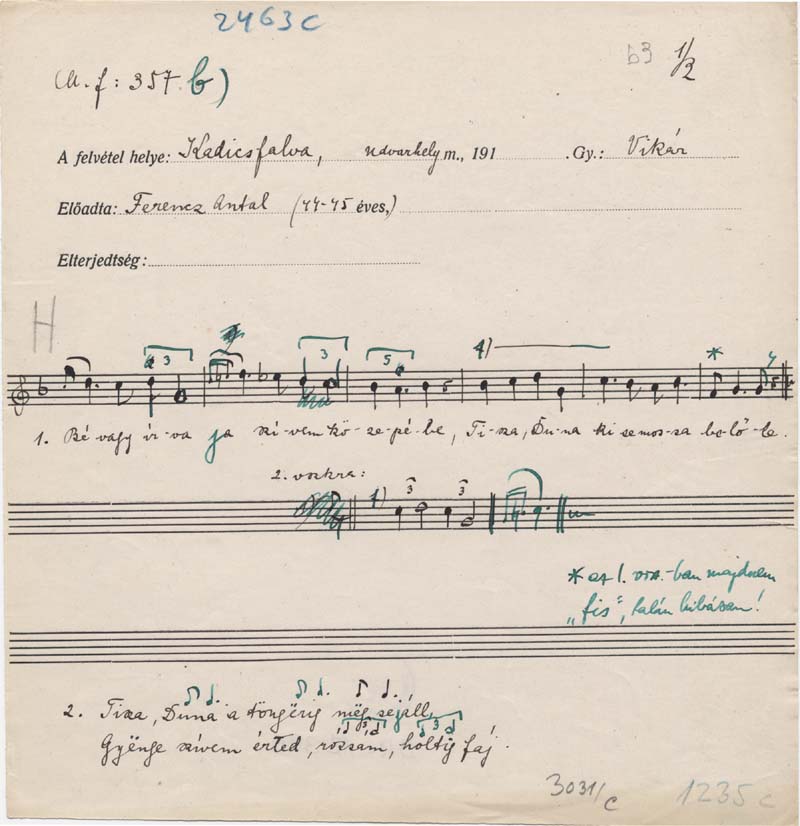 2463 c
63 1/2
M. f: 357. b)
A felvétel helye: Kadicsfalva, Udvarhely m., 191 . Gy.: Vikár
Előadta: Ferencz Antal (44-45 éves,)
Elterjedtség:
H
3 3 5 1)
*
1. Bé vagy ír-va ja szi-vem kö-ze-pé-be, Ti-sza, Du-na ki se mos-sa be-lő-le.
2. vszkra:
1) 3 3
* az 1. vrsz.-ban majdnem
„fis", talán hibásan!
2. Tisza, Duna a töngërig mëg se áll,
3 3
Gyënge szívem értëd, rózsám, hóltig fáj.
3031/c 1235 c